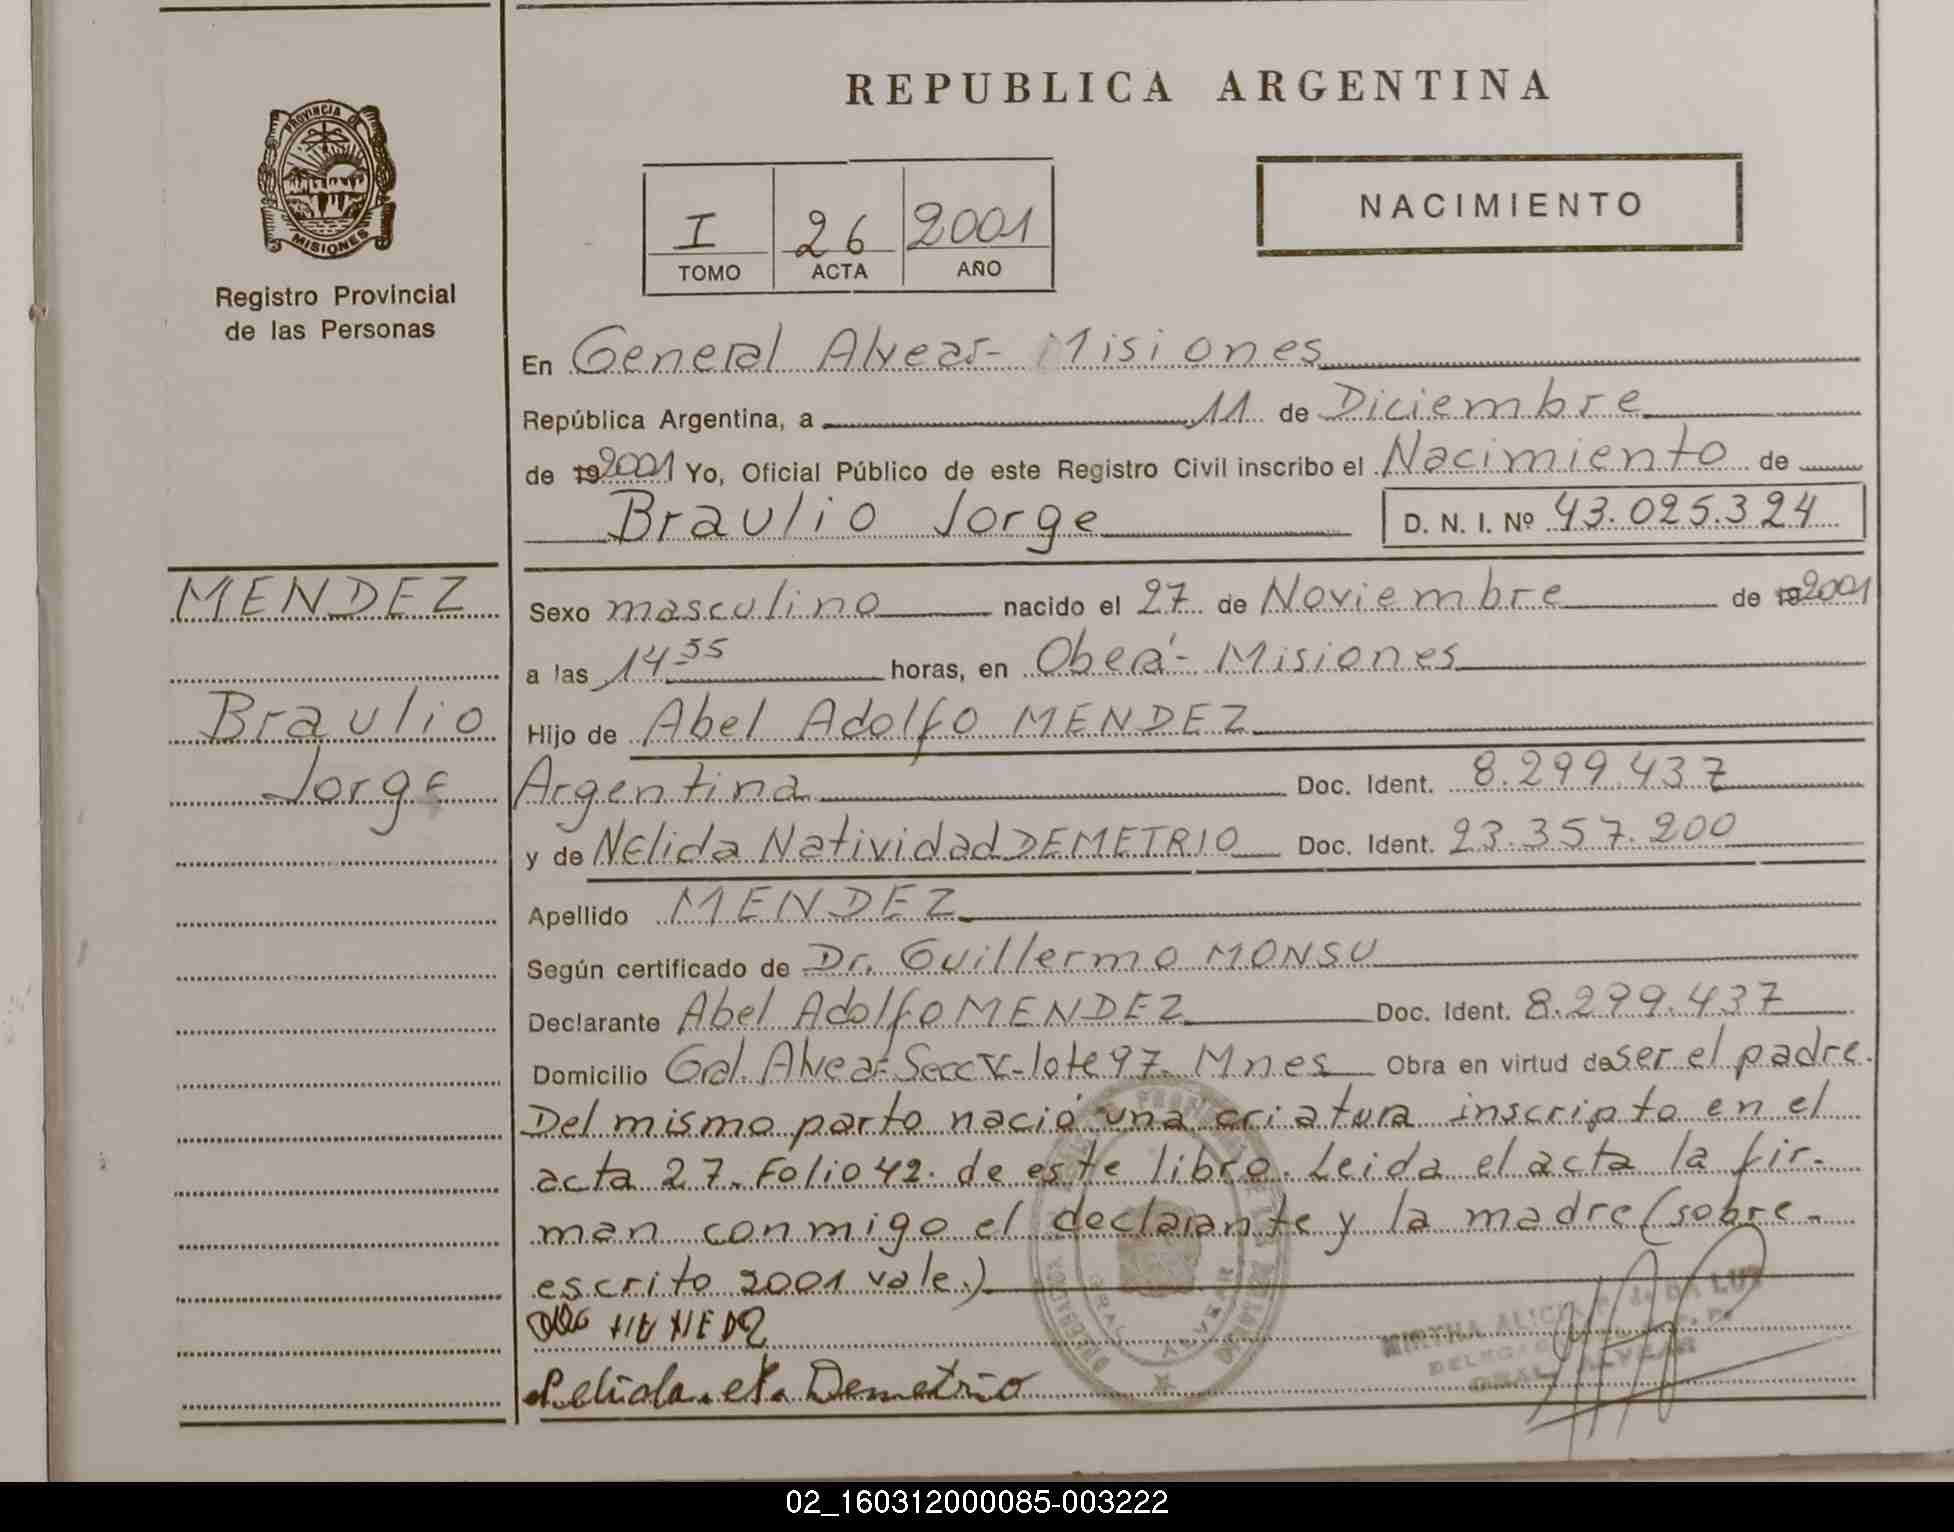 PROVINCIA DE
MISIONES
Registro Provincial
de las Personas
MENDEZ
Braulio
Jorge
REPUBLICA ARGENTINA
I 26 2001
TOMO ACTA AÑO
NACIMIENTO
En General Alvear- Misiones
República Argentina, a 11 de Diciembre
de 19 2001 Yo, Oficial Público de este Registro Civil inscribo el Nacimiento de
Braulio Jorge D. N. I. Nº 43.025.324
Sexo masculino nacido el 27 de Noviembre de 19 2001
a las 14-55 horas, en Oberá- Misiones
Hijo de Abel Adolfo MENDEZ
Argentina Doc. Ident. 8.299.437
y de Nélida Natividad DEMETRIO Doc. Ident. 23.357.200
Apellido MENDEZ
Según certificado de Dr. Guillermo MONSU
Declarante Abel Adolfo MENDEZ Doc. Ident. 8.299.437
Domicilio Gral. Alvear- Secc V- lote 97. Mnes Obra en virtud de ser el padre.
Del mismo parto nació una criatura inscripta en el
acta 27. Folio 42. de este libro. Leida el acta la fir-
man conmigo el declarante y la madre (sobre-
escrito 2001 vale.)
Demetrio
MIRTHA ALICIA de DA LUZ
GRAL. ALVEAR
02_160312000085-003222